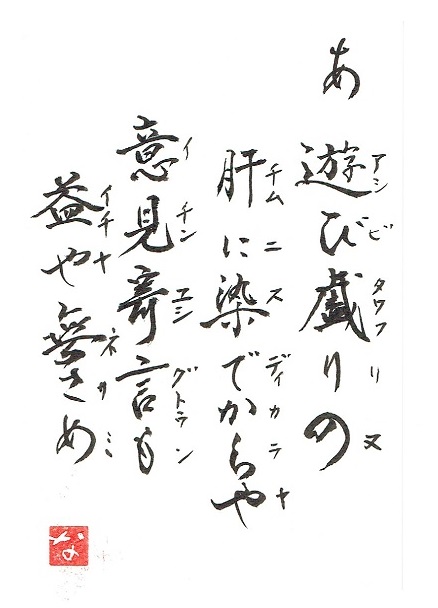 あ 遊び戯りの
アシビタワフリヌ
肝に染でからや
チムニスディカラヤ
意見寄言も
イチンユシグトゥン
益や無さめ
イチヤネサミ
な